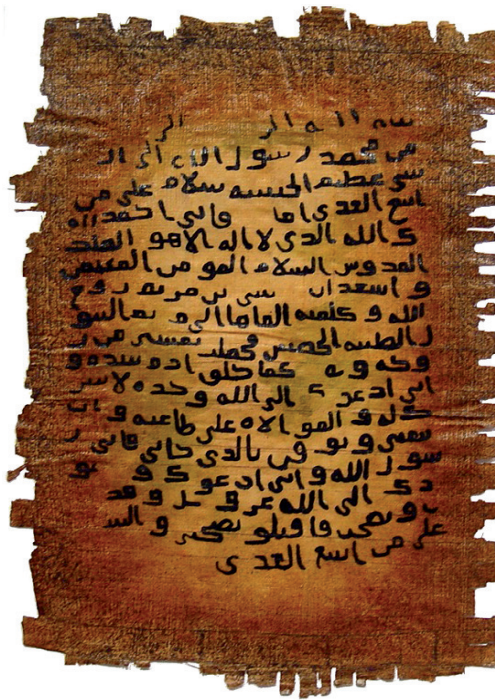 الله الر الر
من محمد رسول الله الى ال
شي عظيم الحبشة سلام على من
اتبع الهدى اما فاني احمد ا
ك الله الذي لا اله الا هو الملك
القدوس السلام المومن المهيمن
و اشهد ان عيسى بن مريم روح
الله و كلمته القاها الى مريم البتو
ل الطيبة الحصينة فحملت بعيسى من ر
وحه و كما خلق ادم بيده و
اني ادعوك الى الله وحده لا شر
يك له و الموالاه على طاعته و ان
تتبعني و تو من بالذي جاني فاني ر
سول الله و اني ادعوك و
دك الى الله عز و جل و قد
و نصحت فاقبلو نصحتي و السلا
على من اتبع الهدى